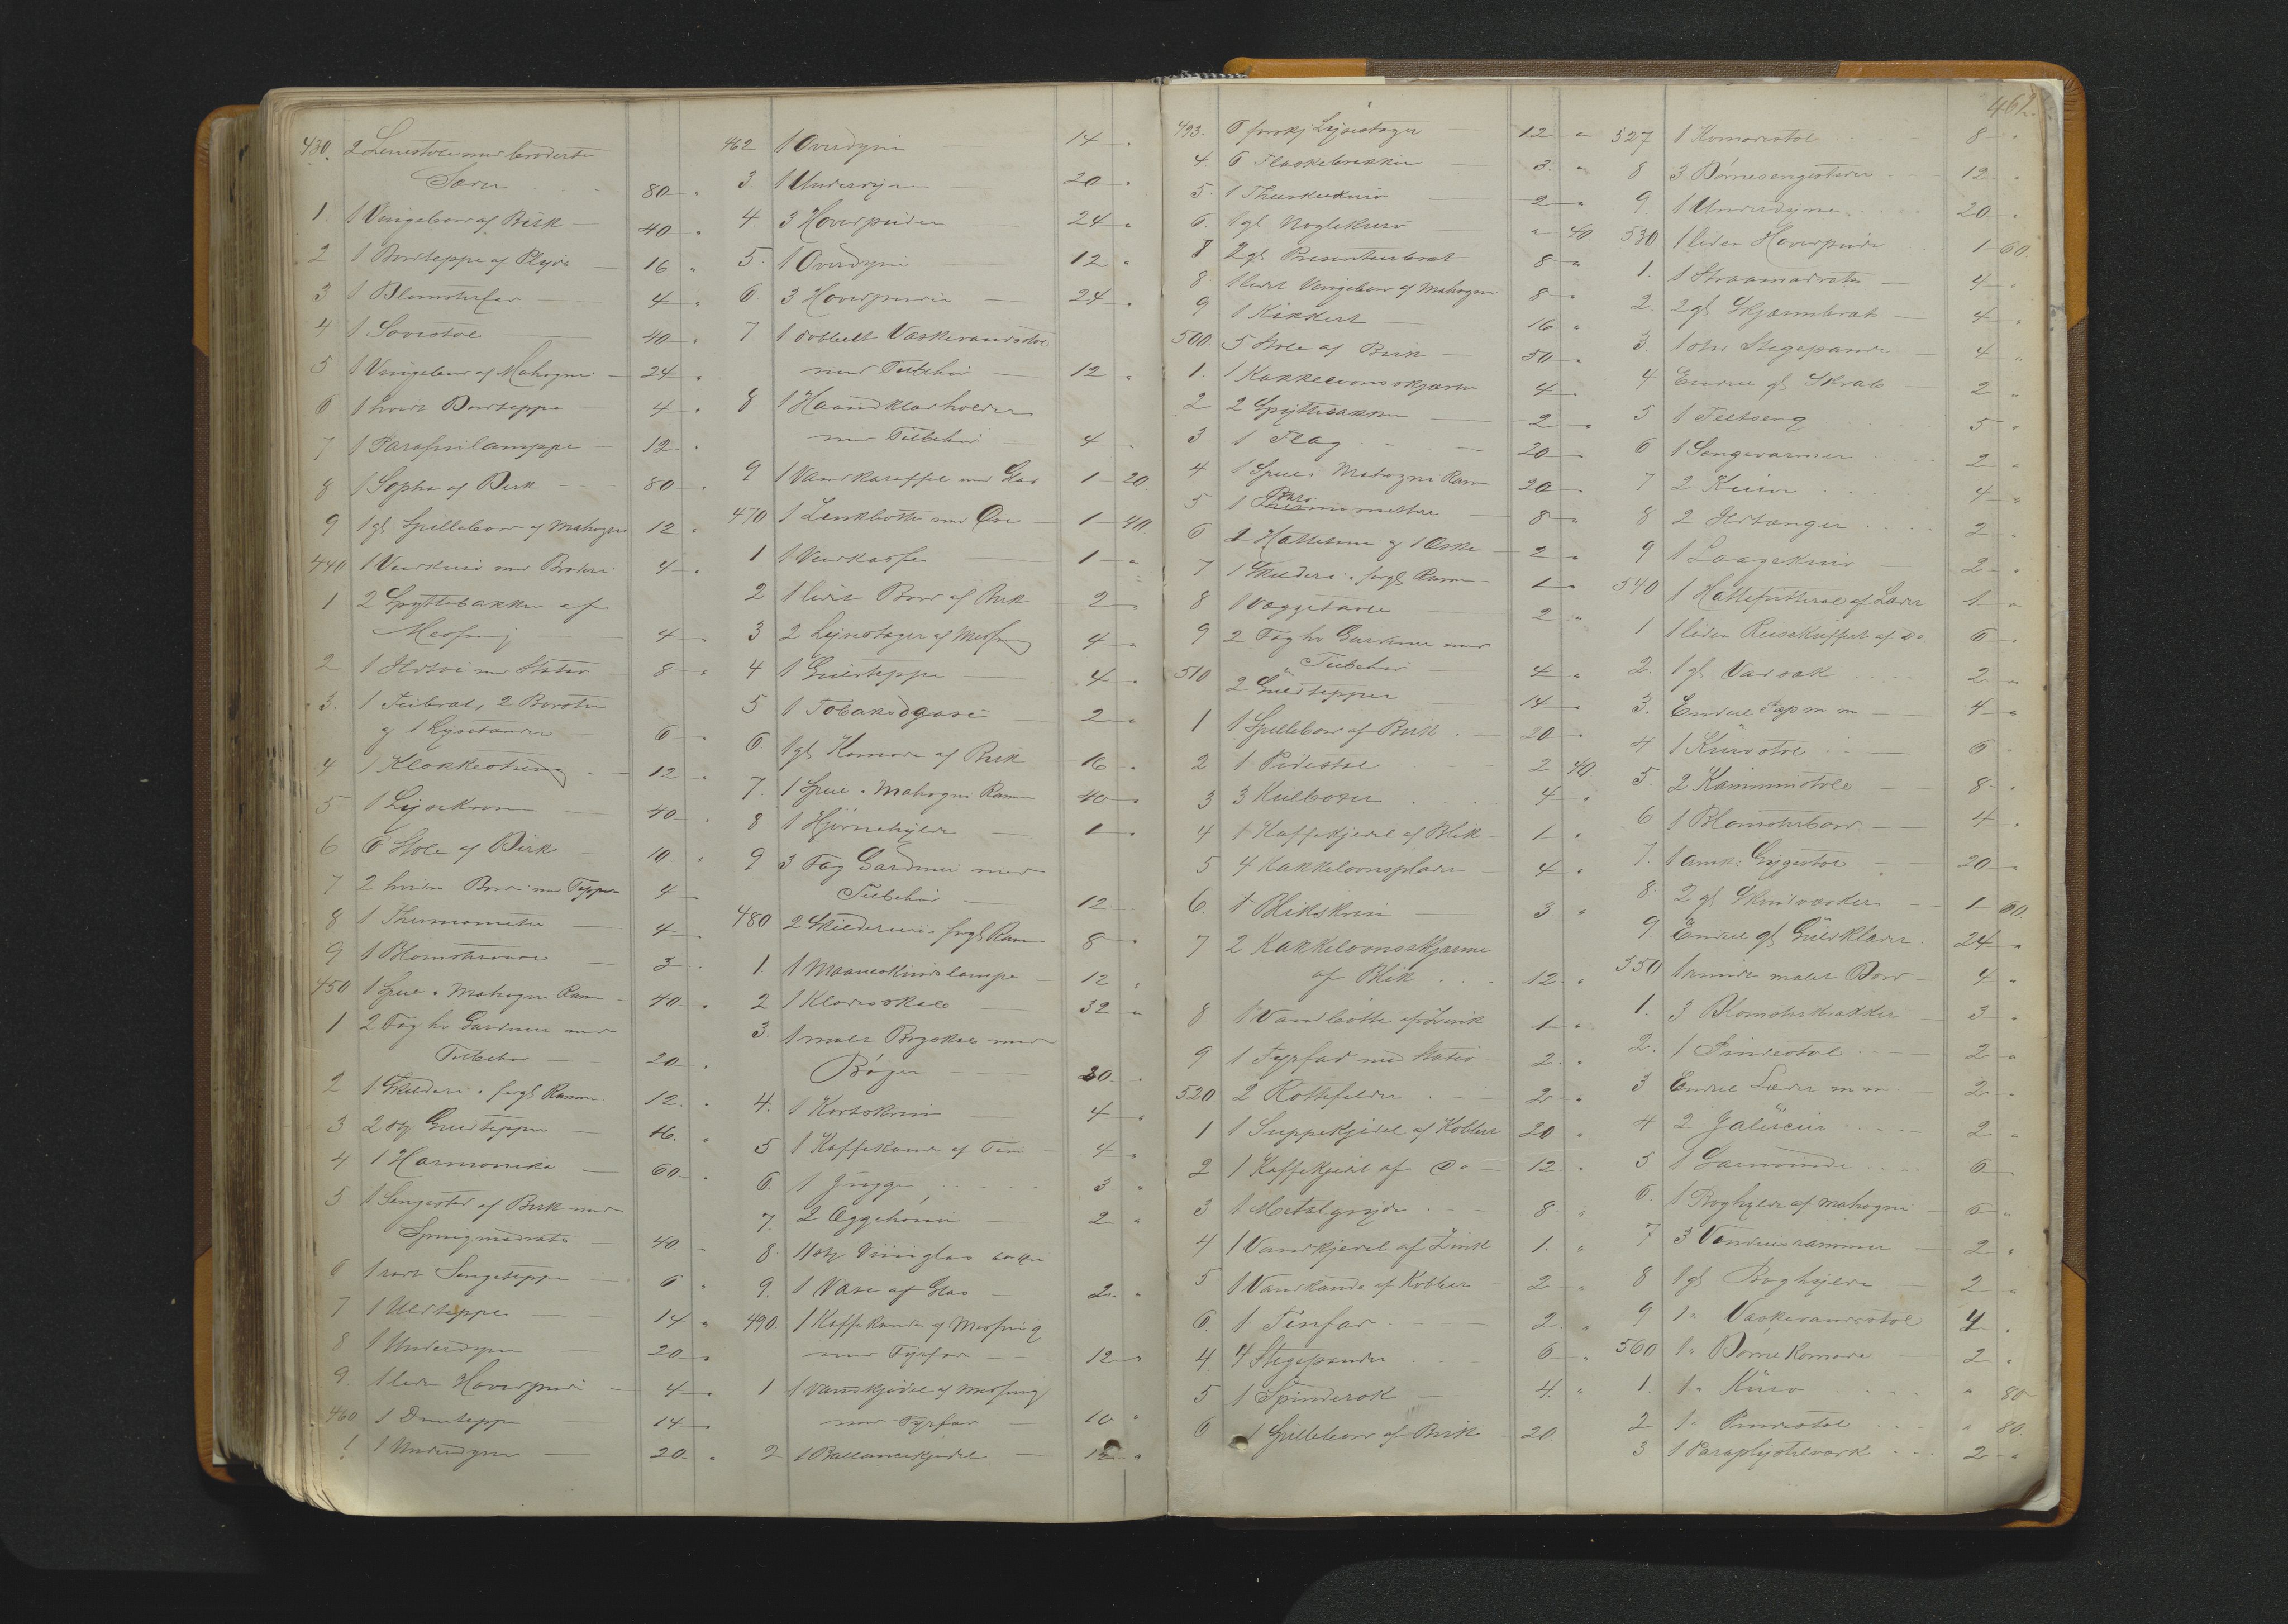 462
430. 2 Lenestole med broderte
Sæder 80 "
1. 1 Vingebord af Birk 40 "
2 1 Bordteppe af Plyds 16 "
3 1 Blomsterfad 4 "
4 1 Sovestol 40 "
5 1 Vingebord af Mahogni 24 "
6 1 hvidt Bordteppe 4 "
7 1 Parafinlamppe 12 "
8 1 Sopha af Birk 80 "
9 1 gl Spillebord af Mahogni 12 "
440 1 Vedkurv med Broderi 4 "
1 2 Spyttebakker af
Messing 4 "
2 1 Ildtøi med Stativ 8 "
3. 1 Feiebræt, 2 Børster
og 1 Lysetander 6 "
4 1 Klokkestreng 12 "
5 1 Lysekrone 40 "
6 6 Stole af Birk 10 "
7 2 hvide Bord med Tepper 4
8 1 Thermometer 4
9 1 Blomstervase 3 "
450 1 Speil i Mahogni Ramme 40 "
1 2 Fag hv Gardiner med
Tilbehør 20 "
2 1 Skilderi i forgl Ramme 12 "
3 2 st Gulvtepper 16 "
4 1 Harmonika 60 "
5 1 Sengested af Birk med
Springmadrats 40 "
6 1 rødt Sengeteppe 6 "
7 1 Uldteppe 14 "
8 1 Underdyne 20 "
9. 1 liden Hovedpude 4 "
460 1 Dunteppe 14 "
1 1 Underdyne 20 "
462 1 Overdyne 14 "
3. 1 Underdyne 20 "
4. 3 Hovedpuder 24 "
5. 1 Overdyne 12 "
6 3 Hovedpuder 24 "
7 1 dobbelt Vaskevandsstol
med Tilbehør 12 "
8 1 Haandklædholder
med Tilbehør 4 "
9 1 Vandkaraffel med Glas 1 20
470 1 Zinkbøtte med Øse 1 40
1 1 Vedkasse 1 "
2 1 lidet Bord af Birk 2 "
3 2 Lysestager af Messing 4 "
4 1 Gulvteppe 4 "
5 1 Tobaksdaase 2 "
6. 1 gl Komode af Birk 16 "
7. 1 Speil i Mahogni Ramme 40 "
8 1 Hjørnehylde 1 "
9 3 Fag Gardiner med
Tilbehør 12
480 2 Skilderier i forgl Ramme 8 "
1 1 Maaneskinslampe 12 "
2 1 Klædesskab 32 "
3. 1 malt Bogskab med
Bøger 30 "
4. 1 Kortskrin 4 "
5 1 Kaffekande af Tin 4 "
6. 1 Jugge 3 "
7. 2 Æggehøner 2 "
8. 11 st Viinglas
9. 1 Vase af Glas 2 "
490. 1 Kaffekande af Messing
med Fyrfad 12 "
1 1 Vandkjedel af Messing
med Fyrfad 10 "
2 1 Ballancekjedel 12 "
493. 6 forskj Lysestager 12 "
4. 6 Flaskebrikker 3 "
5. 1 Theskeekurv 2 "
6. 1 gl Nøglekurv " 40
7 2 gl Presenteerbræt 8 "
8. 1 lidet Vingebord af Mahogni 8 "
9 1 Kikkert 16 "
500 5 Stole af Birk 50 "
1. 1 Kakkelovnsskjærm 4 "
2 2 Spyttebakker 2 "
3 1 Flag 20 "
4 1 Speil i Mahogni Ramme 20 "
5 1 Barometer 8 "
6 2 Hatteæsker og 1 Æske 2 "
7 1 Skilderi i forgl Ramme 1 "
8 1 Væggetavle 2 "
9 2 Fag hv Gardiner med
Tilbehør 4 "
510 2 Gulvtepper 14 "
1 1 Spillebord af Birk 20 "
2 1 Pidestal 2 40
3 3 Kulbøtter 4 "
4 1 Kaffekjedel af Blik 1 "
5 4 Kakkelovnsplader 4 "
6. 1 Blikskrin 3 "
7 2 Kakkelovnsskjærme
af Blik 12 "
8 1 Vandbøtte af Zink 1 "
9 1 Fyrfad med Stativ 2 "
520 2 Rottefelder 2 "
1 1 Suppekjedel af Kobber 20 "
2 1 Kaffekjedel af Do 12 "
3 1 Metalgryde 8 "
4 1 Vandkjedel af Zink 1 "
5 1 Vandkande af Kobber 2 "
6. 1 Tinfad 2 "
4. 4 Stegepander 6 "
5 1 Spinderok 4 "
6 1 Spillebord af Birk 20
527 1 Komodestol 8 "
8 3 Børnesengesteder 12 "
9 1 Underdyne 20 "
530 1 liden Hovedpude 1 60
1. 1 Straamadrats 4 "
2. 2 gl Skjærmbræt 4 "
3. 1 stor Stegepande 4 "
4 Endeel gl Skrab 2 "
5 1 Feltseng 5 "
6 1 Sengevarmer 2 "
7 2 Kurve 4 "
8 2 Ildtænger 2 "
9 1 Laagekurv 2 "
540 1 Hattefutteral af Læder 1 "
1 1 liden Reisekuffert af Do 6 "
2. 1 gl Vadsæk 2 "
3. Endeel Tøj m m 4 "
4 1 Kurvstol 6
5. 2 Kaminstole 8 "
6 1 Blomsterbord 4 "
7. 1 amk: Gyngestol 20 "
8. 2 gl Skindværker 1 60
9. Endeel gl Gulvklæder 24 "
550 1 rundt malet Bord 4 "
1. 3 Blomsterkrakker 3 "
2. 1 Pindestol 2 "
3 Endeel Læder m m 2 "
4 2 Jalusier 2 "
5 1 Garnvinde 6
6. 1 Boghylde af Mahogni 6 "
7 3 Vinduesrammer 2 "
8 1 gl Boghylde 2 "
9 1 " Vaskevandsstol 4 "
560 1 " Børne Komode 2 "
1. 1 " Kurv " 80
2 1 " Pindestol " 80
3 1 Paraplystilværk 2 "